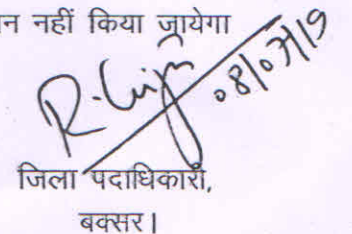 न नहीं किया जायेगा
08/07/19
जिला पदाधिकारी,
बक्सर।